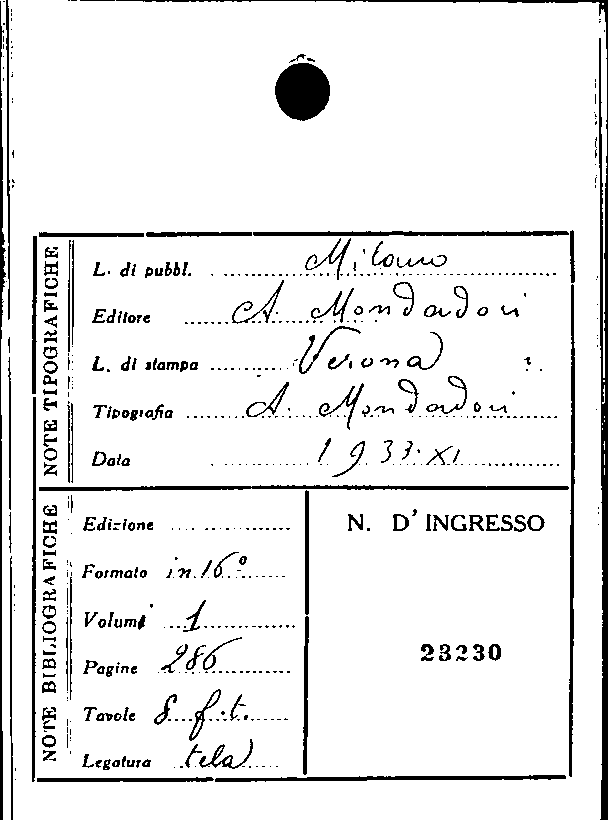 NOTE TIPOGRAFICHE
L. di pubbl. Milano
Editore A. Mondadori
L. di stampa Verona
Tipografia A. Mondadori
Data 1933-XI
NOTE BIBLIOGRAFICHE
Edizione
Formato in 16°
Volumi 1
Pagine 286
Tavole 8 f.t.
Legatura tela
N. D'INGRESSO
23230